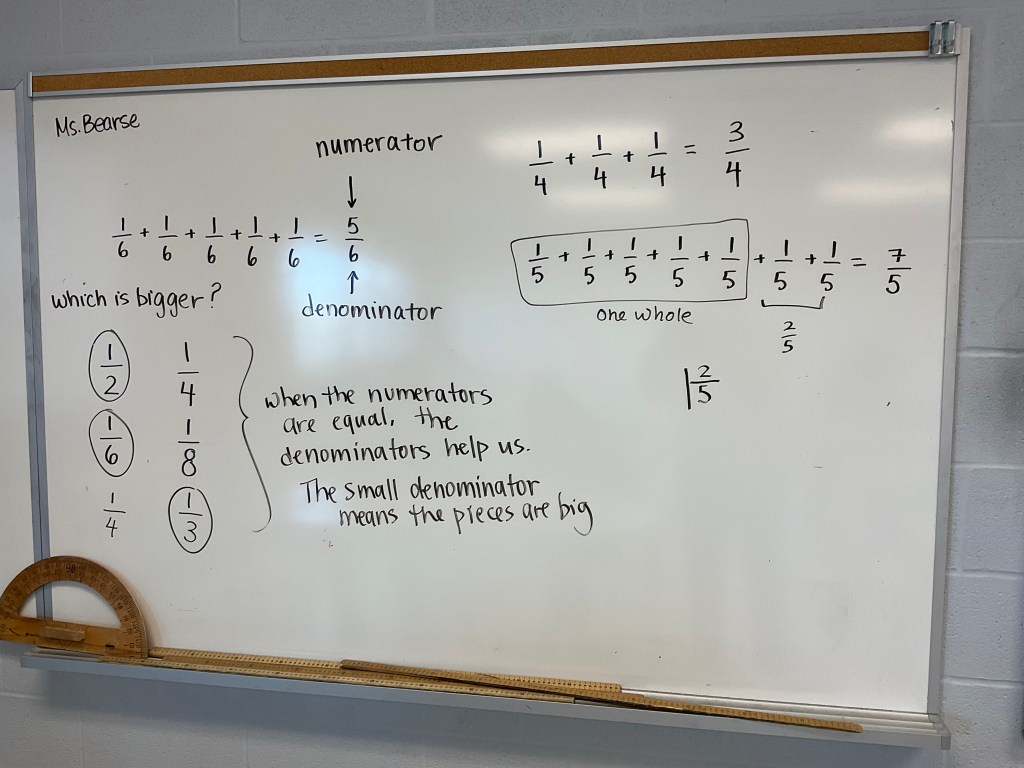 Ms. Bearse
numerator
1/6 + 1/6 + 1/6 + 1/6 + 1/6 = 5/6
denominator
which is bigger?
1/2 1/4
1/6 1/8
1/4 1/3
when the numerators
are equal, the
denominators help us.
The small denominator
means the pieces are big
1/4 + 1/4 + 1/4 = 3/4
1/5 + 1/5 + 1/5 + 1/5 + 1/5 + 1/5 + 1/5 = 7/5
one whole
2/5
1 2/5